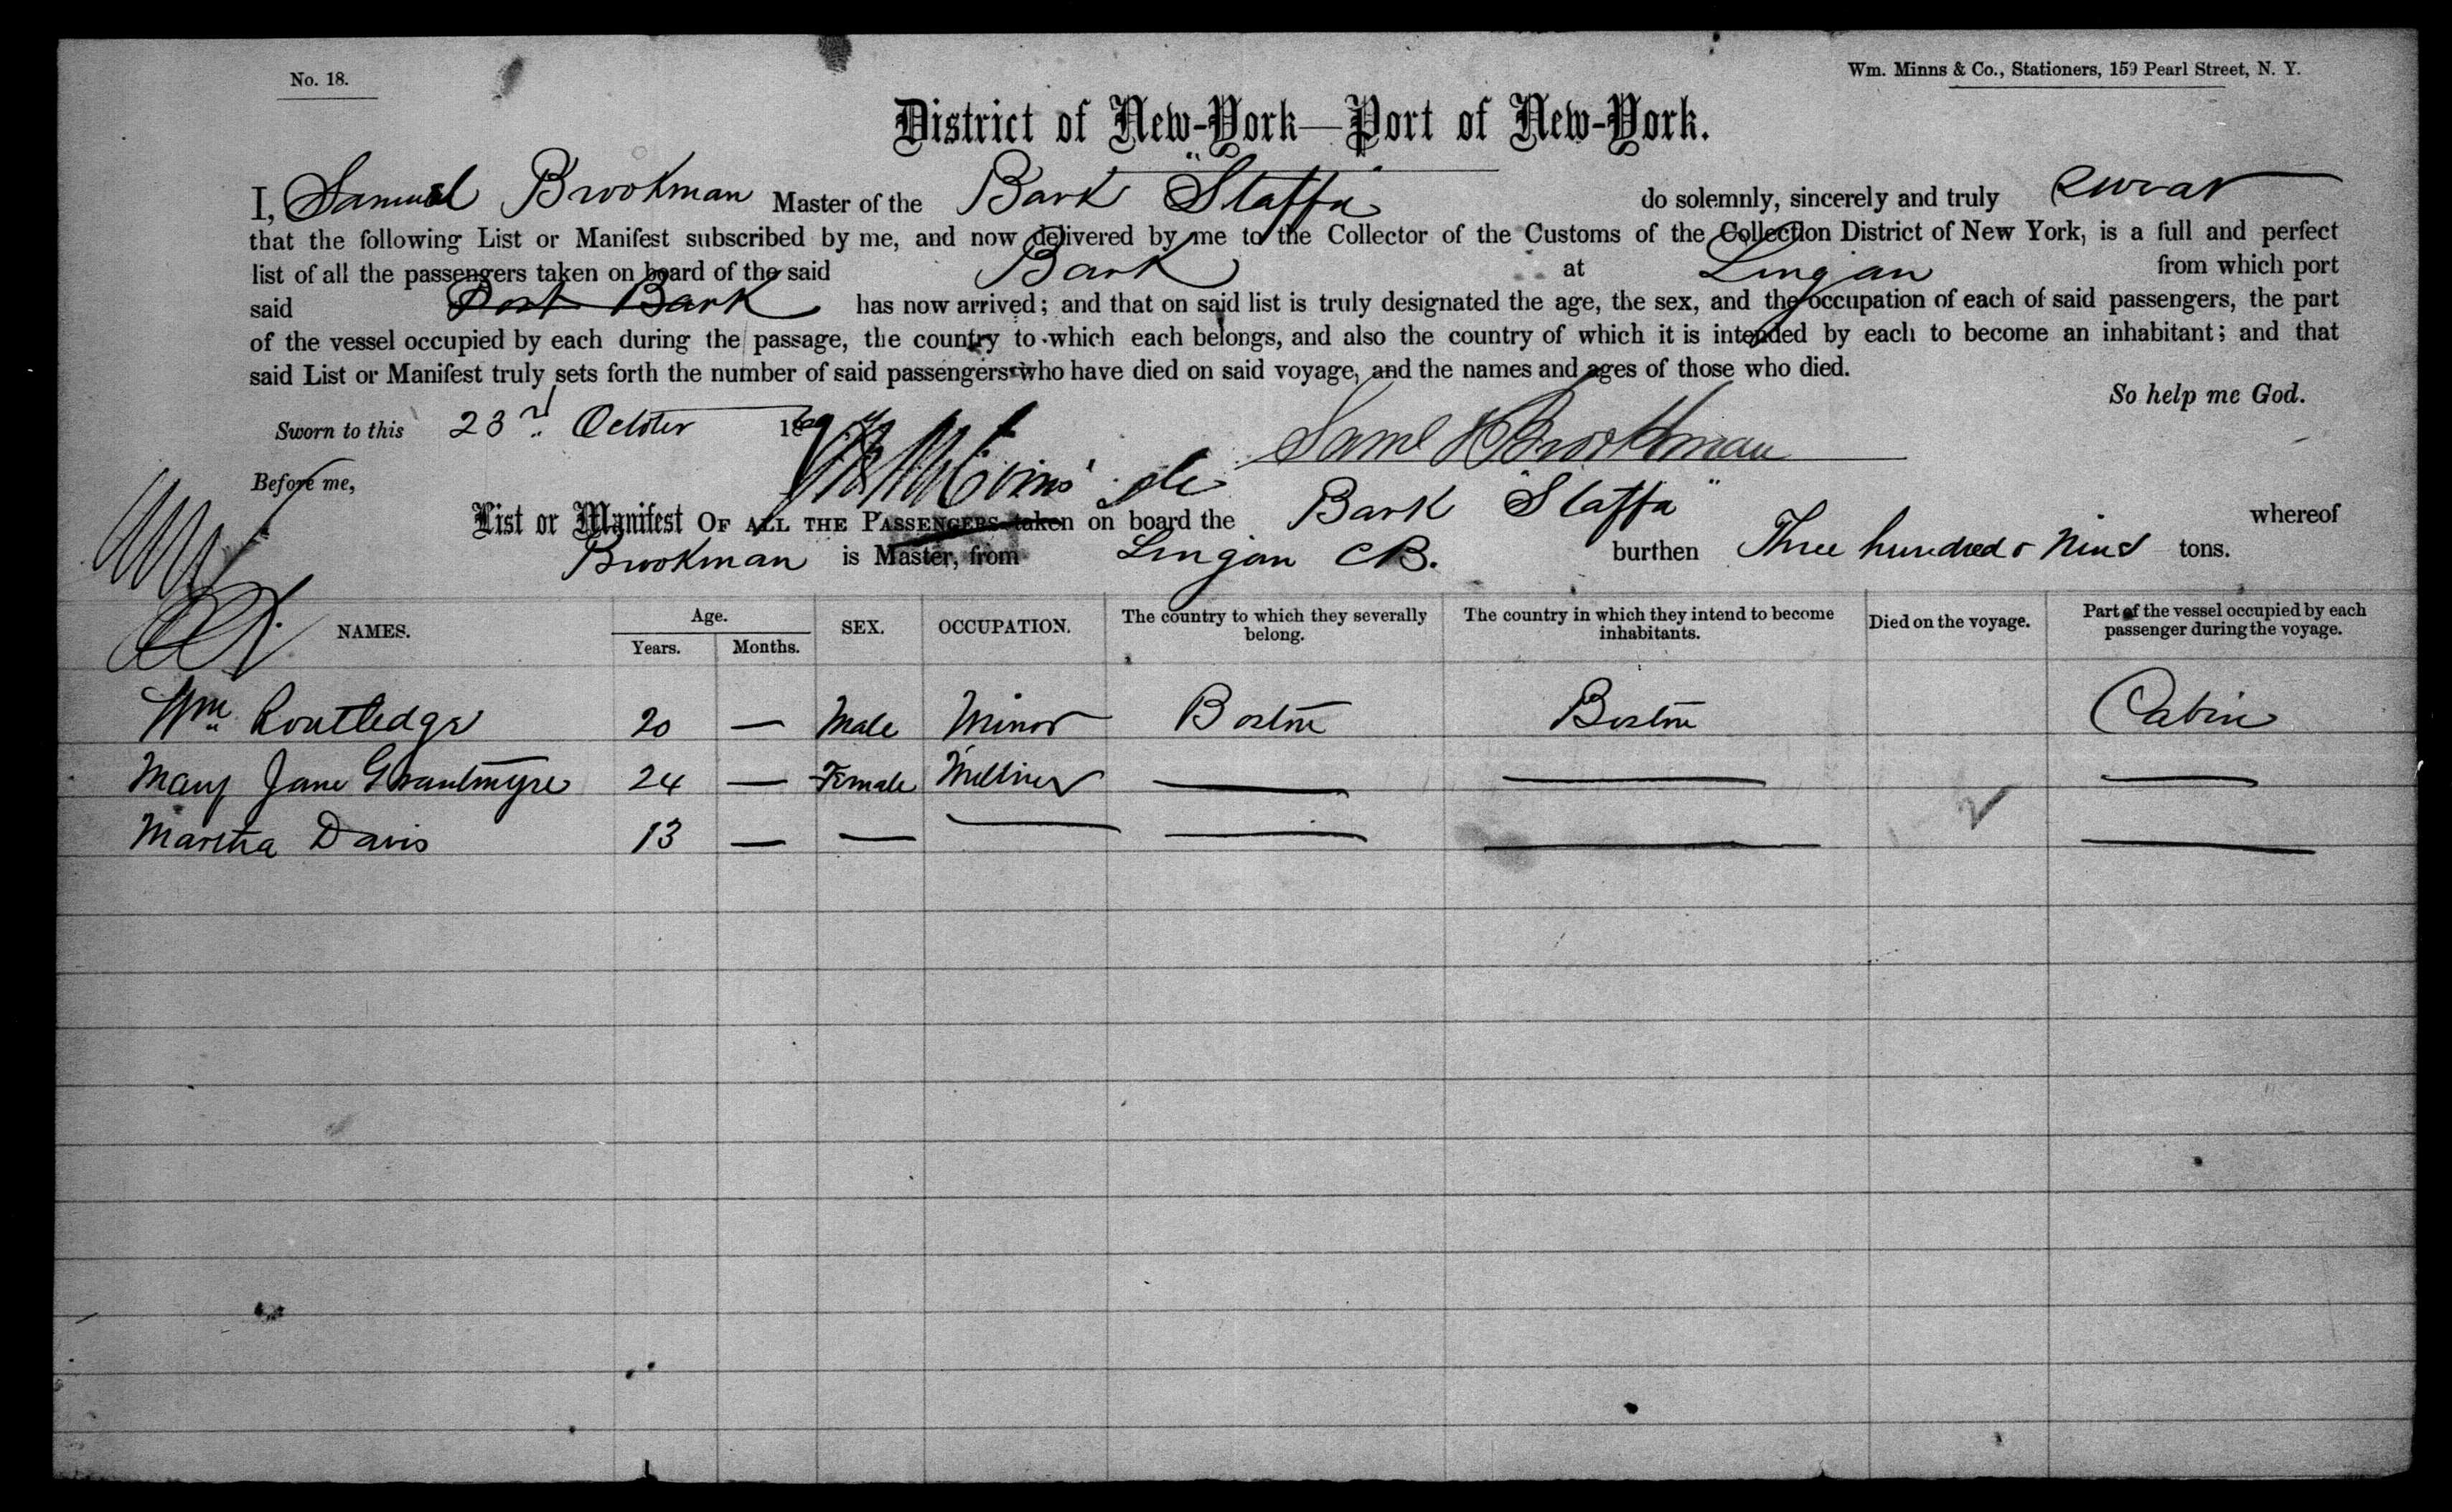 No. 18.
Wm. Minns & Co., Stationers, 159 Pearl Street, N. Y.
District of New-York—Port of New-York.
I, Samuel Brookman Master of the Bark "Staffa" do solemnly, sincerely and truly swear
that the following List or Manifest subscribed by me, and now delivered by me to the Collector of the Customs of the Collection District of New York, is a full and perfect
list of all the passengers taken on board of the said Bark at Lingan from which port
said Port Bark has now arrived; and that on said list is truly designated the age, the sex, and the occupation of each of said passengers, the part
of the vessel occupied by each during the passage, the country to which each belongs, and also the country of which it is intended by each to become an inhabitant; and that
said List or Manifest truly sets forth the number of said passengers who have died on said voyage, and the names and ages of those who died.
So help me God.
Sworn to this 23rd October 18
Saml Brookman
Before me,
List or Manifest OF ALL THE PASSENGERS taken on board the Bark "Staffa" whereof
Brookman is Master, from Lingan CB. burthen Three hundred & Nine tons.
NAMES. Age. Years. Months. SEX. OCCUPATION. The country to which they severally belong. The country in which they intend to become inhabitants. Died on the voyage. Part of the vessel occupied by each passenger during the voyage.
Wm Routledge 20 — Male Minor Boston Boston Cabin
Mary Jane Grantmyre 24 — Female Milliner — — —
Martha Davis 13 — — — — — —